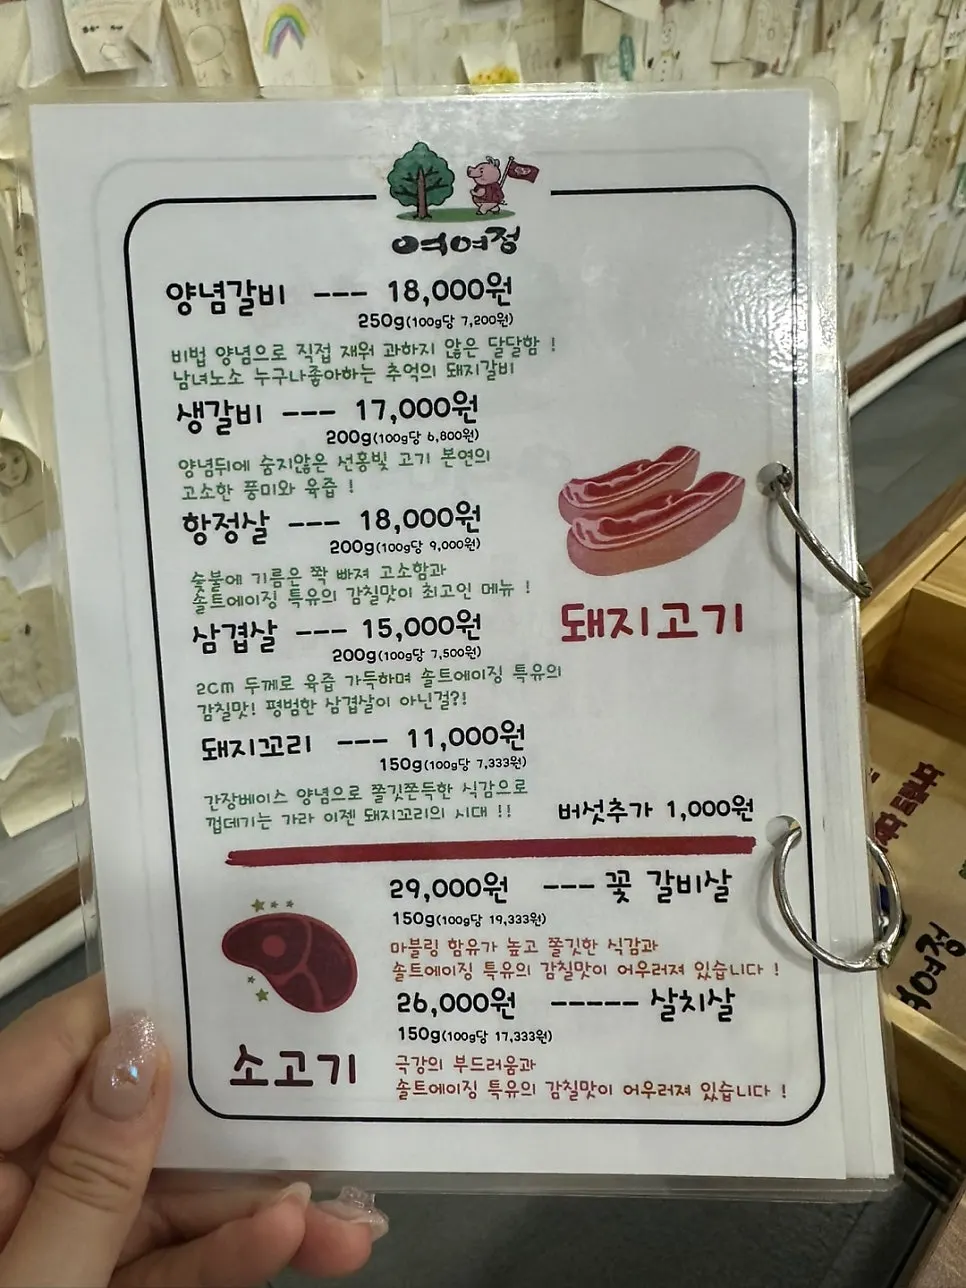 여여정
양념갈비 --- 18,000원
250g(100g당 7,200원)
비법 양념으로 직접 재워 과하지 않은 달달함 !
남녀노소 누구나좋아하는 추억의 돼지갈비
생갈비 --- 17,000원
200g(100g당 6,800원)
양념뒤에 숨지않은 선홍빛 고기 본연의
고소한 풍미와 육즙 !
항정살 --- 18,000원
200g(100g당 9,000원)
숯불에 기름은 쫙 빠져 고소함과
솔트에이징 특유의 감칠맛이 최고인 메뉴 !
돼지고기
삼겹살 --- 15,000원
200g(100g당 7,500원)
2cm 두께로 육즙 가득하며 솔트에이징 특유의
감칠맛! 평범한 삼겹살이 아닌걸?!
돼지꼬리 --- 11,000원
150g(100g당 7,333원)
간장베이스 양념으로 쫄깃쫀득한 식감으로
껍데기는 가라 이젠 돼지꼬리의 시대 !!
버섯추가 1,000원
29,000원 --- 꽃 갈비살
150g(100g당 19,333원)
마블링 함유가 높고 쫄깃한 식감과
솔트에이징 특유의 감칠맛이 어우러져 있습니다 !
26,000원 ----- 살치살
150g(100g당 17,333원)
극강의 부드러움과
솔트에이징 특유의 감칠맛이 어우러져 있습니다 !
소고기
여정